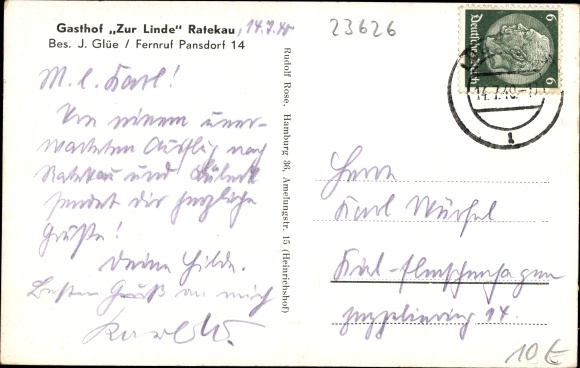 Gasthof „Zur Linde" Ratekau, 14.7.40
Bes. J. Glüe / Fernruf Pansdorf 14
M. l. Karl!
Von einem uner-
warteten Ausflug nach
Ratekau und Lübeck
sendet dir herzliche
Grüße!
Deine Hilde.
Besten Gruß an mich
Karl W.
Rudolf Rose, Hamburg 36, Amelungstr. 15 (Heinrichshof)
23626
6 Deutsches Reich 6
14.7.40
1
Herrn
Karl Würfel
Kiel-Elmschenhagen
Zeppelinring 14.
10 €